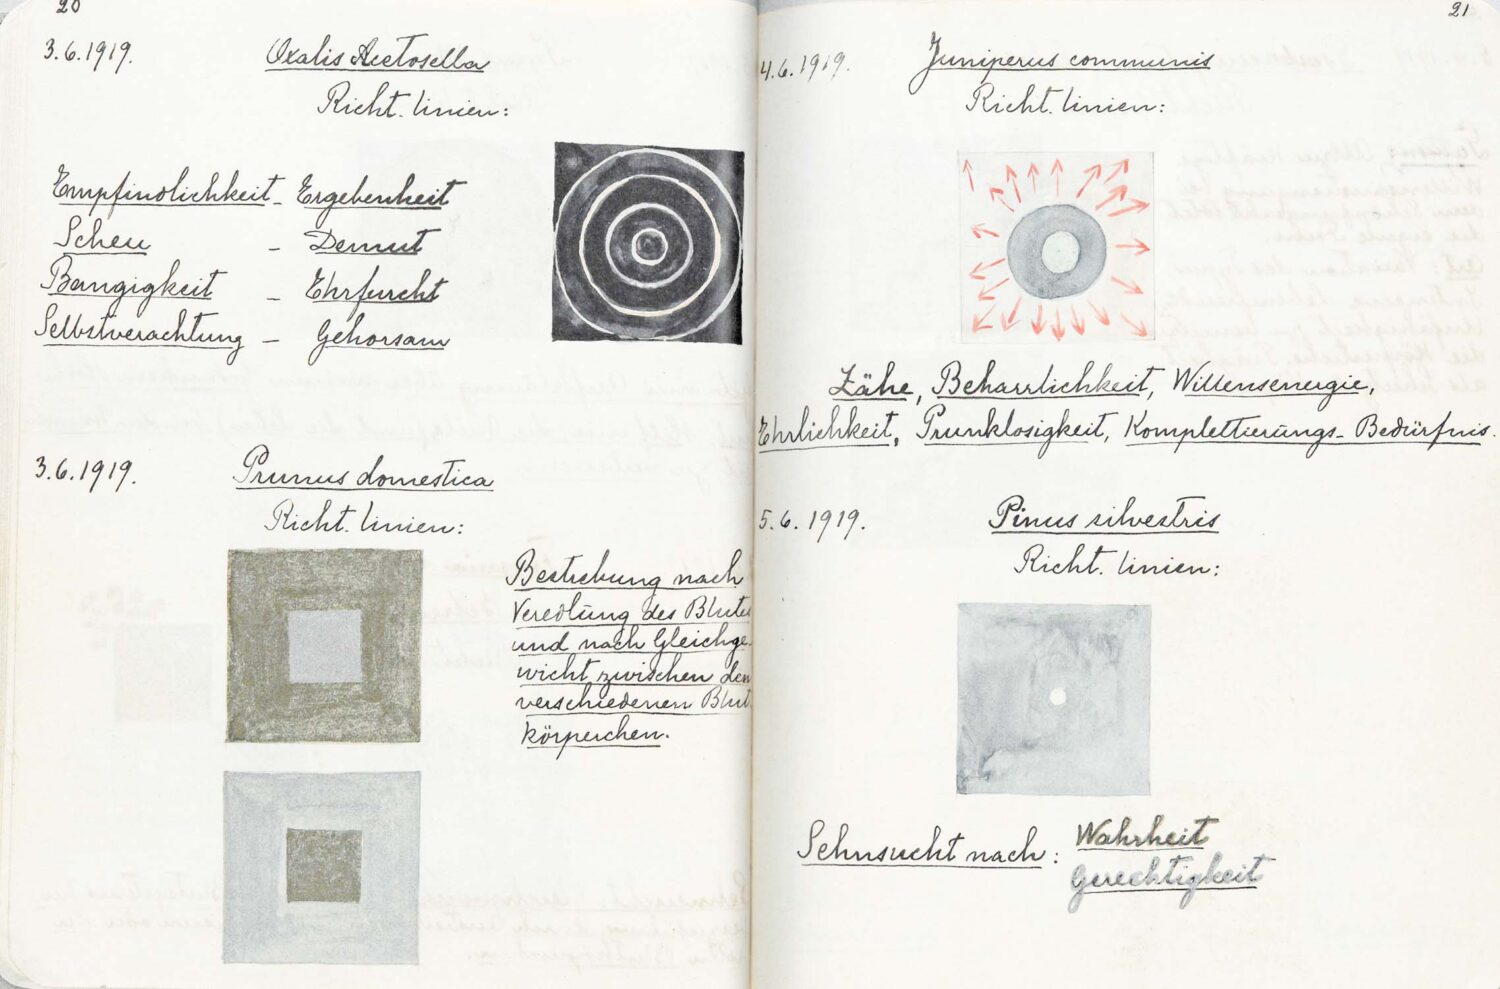 20
3.6.1919. Oxalis Acetosella
Richt. linien:
Empfindlichkeit - Ergebenheit
Scheu - Demut
Bangigkeit - Ehrfurcht
Selbstverachtung - Gehorsam
3.6.1919. Prunus domestica
Richt. linien:
Bestrebung nach
Veredlung des Blutes
und nach Gleichge-
wicht zwischen den
verschiedenen Blut
körperchen.
21
4.6.1919. Juniperus communis
Richt. linien:
Zähe, Beharrlichkeit, Willensenergie,
Ehrlichkeit, Prunklosigkeit, Komplettierungs-Bedürfnis.
5.6.1919. Pinus silvestris
Richt. linien:
Sehnsucht nach: Wahrheit
Gerechtigkeit